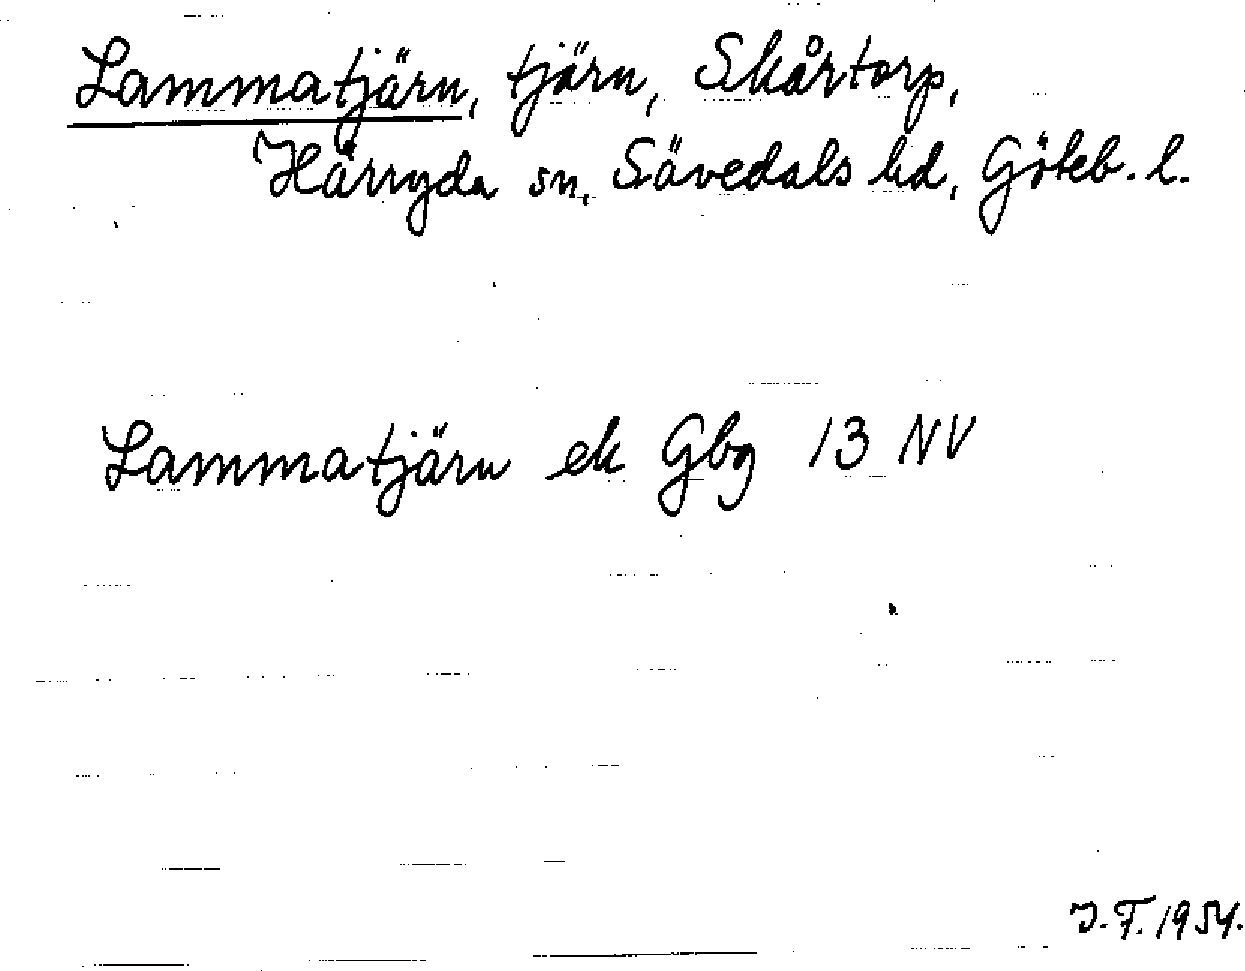 Lammatjärn, tjärn, Skårtorp,
Härryda sn, Sävedals hd, Göteb. l.
Lammatjärn ek Gbg 13 NV
J. F. 1954.